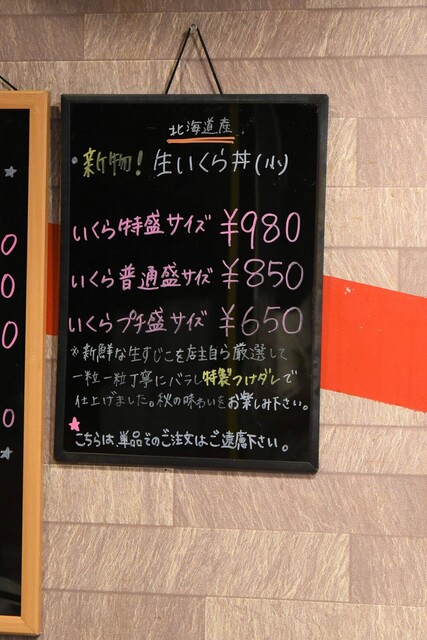 北海道産
・新物！ 生いくら丼(小)
いくら特盛サイズ ¥980
いくら普通盛サイズ ¥850
いくらプチ盛サイズ ¥650
※新鮮な生すじこを店主自ら厳選して
一粒一粒丁寧にバラし特製つけダレで
仕上げました。秋の味わいをお楽しみ下さい。
★
こちらは、単品でのご注文はご遠慮下さい。
☆
0
0
0
0
☆